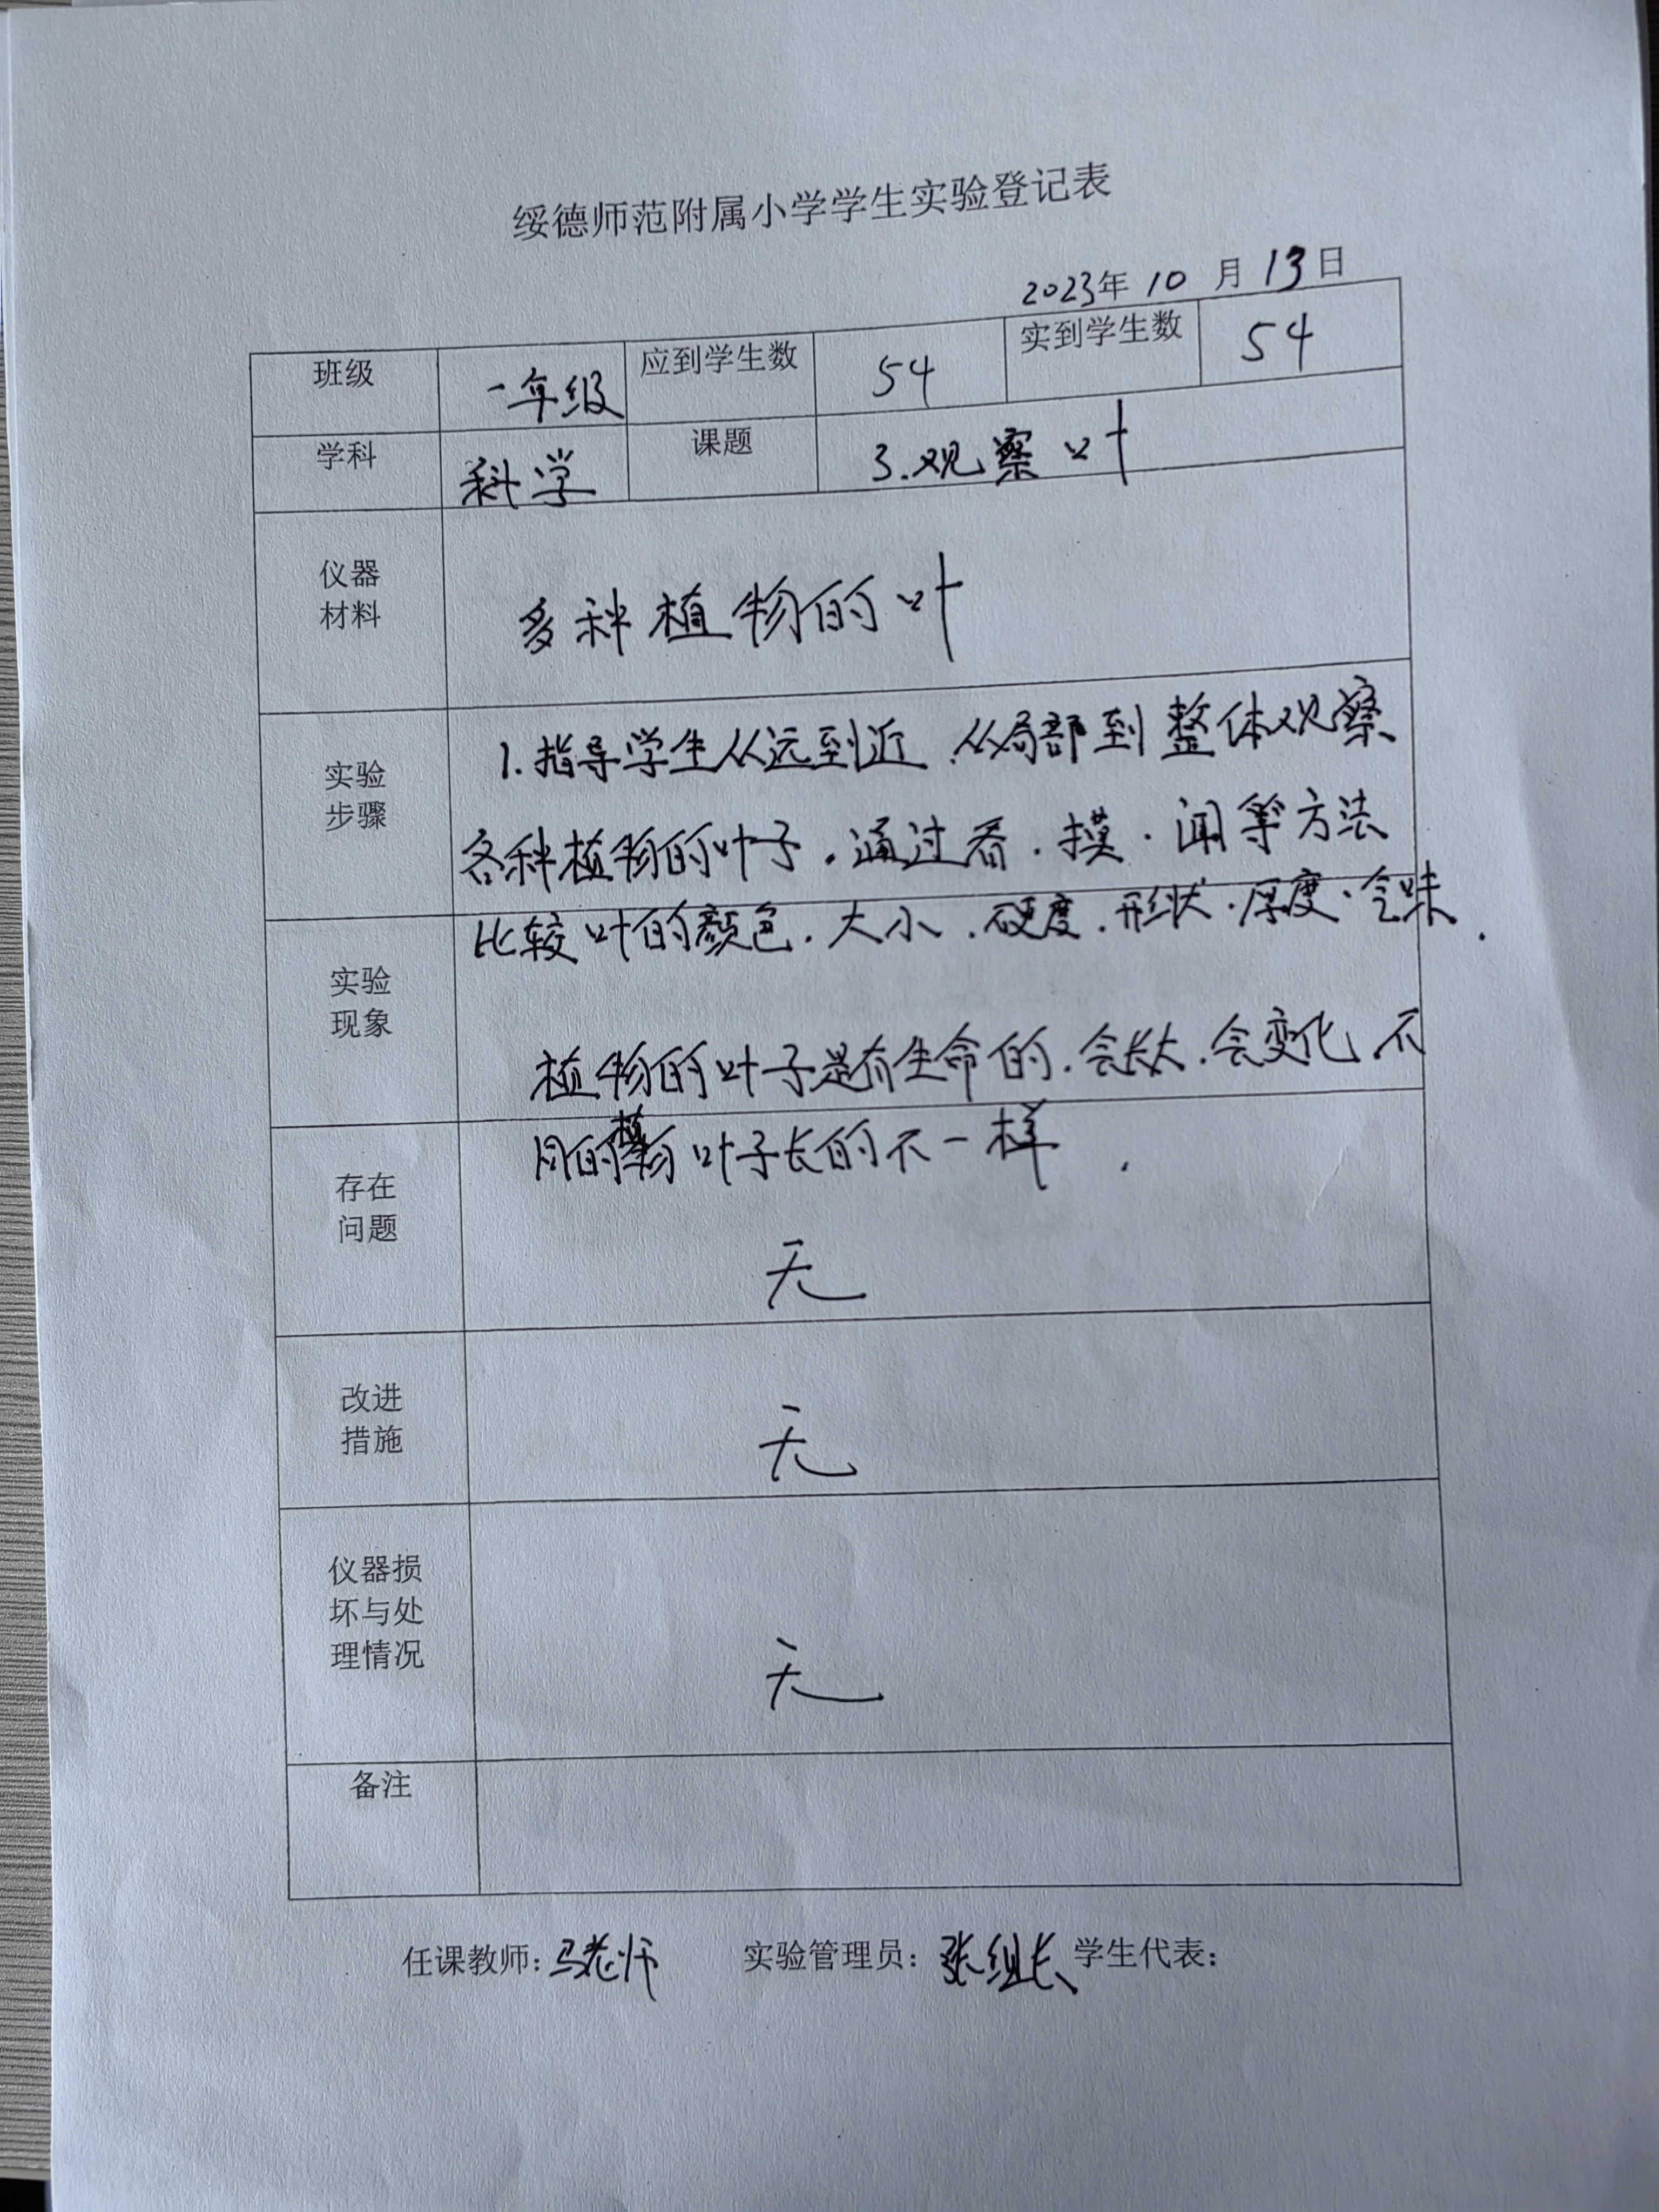 绥德师范附属小学学生实验登记表
2023年 10 月 13日
班级 一年级 应到学生数 54 实到学生数 54
学科 科学 课题 3.观察叶
仪器
材料
多种植物的叶
实验
步骤
1.指导学生从远到近、从局部到整体观察
各种植物的叶子。通过看、摸、闻等方法
比较叶的颜色、大小、硬度、形状、厚度、气味.
实验
现象
植物的叶子是有生命的.会长大.会变化 不
同的植物叶子长的不一样.
存在
问题
无
改进
措施
无
仪器损
坏与处
理情况
无
备注
任课教师:马老师 实验管理员:张组长 学生代表: